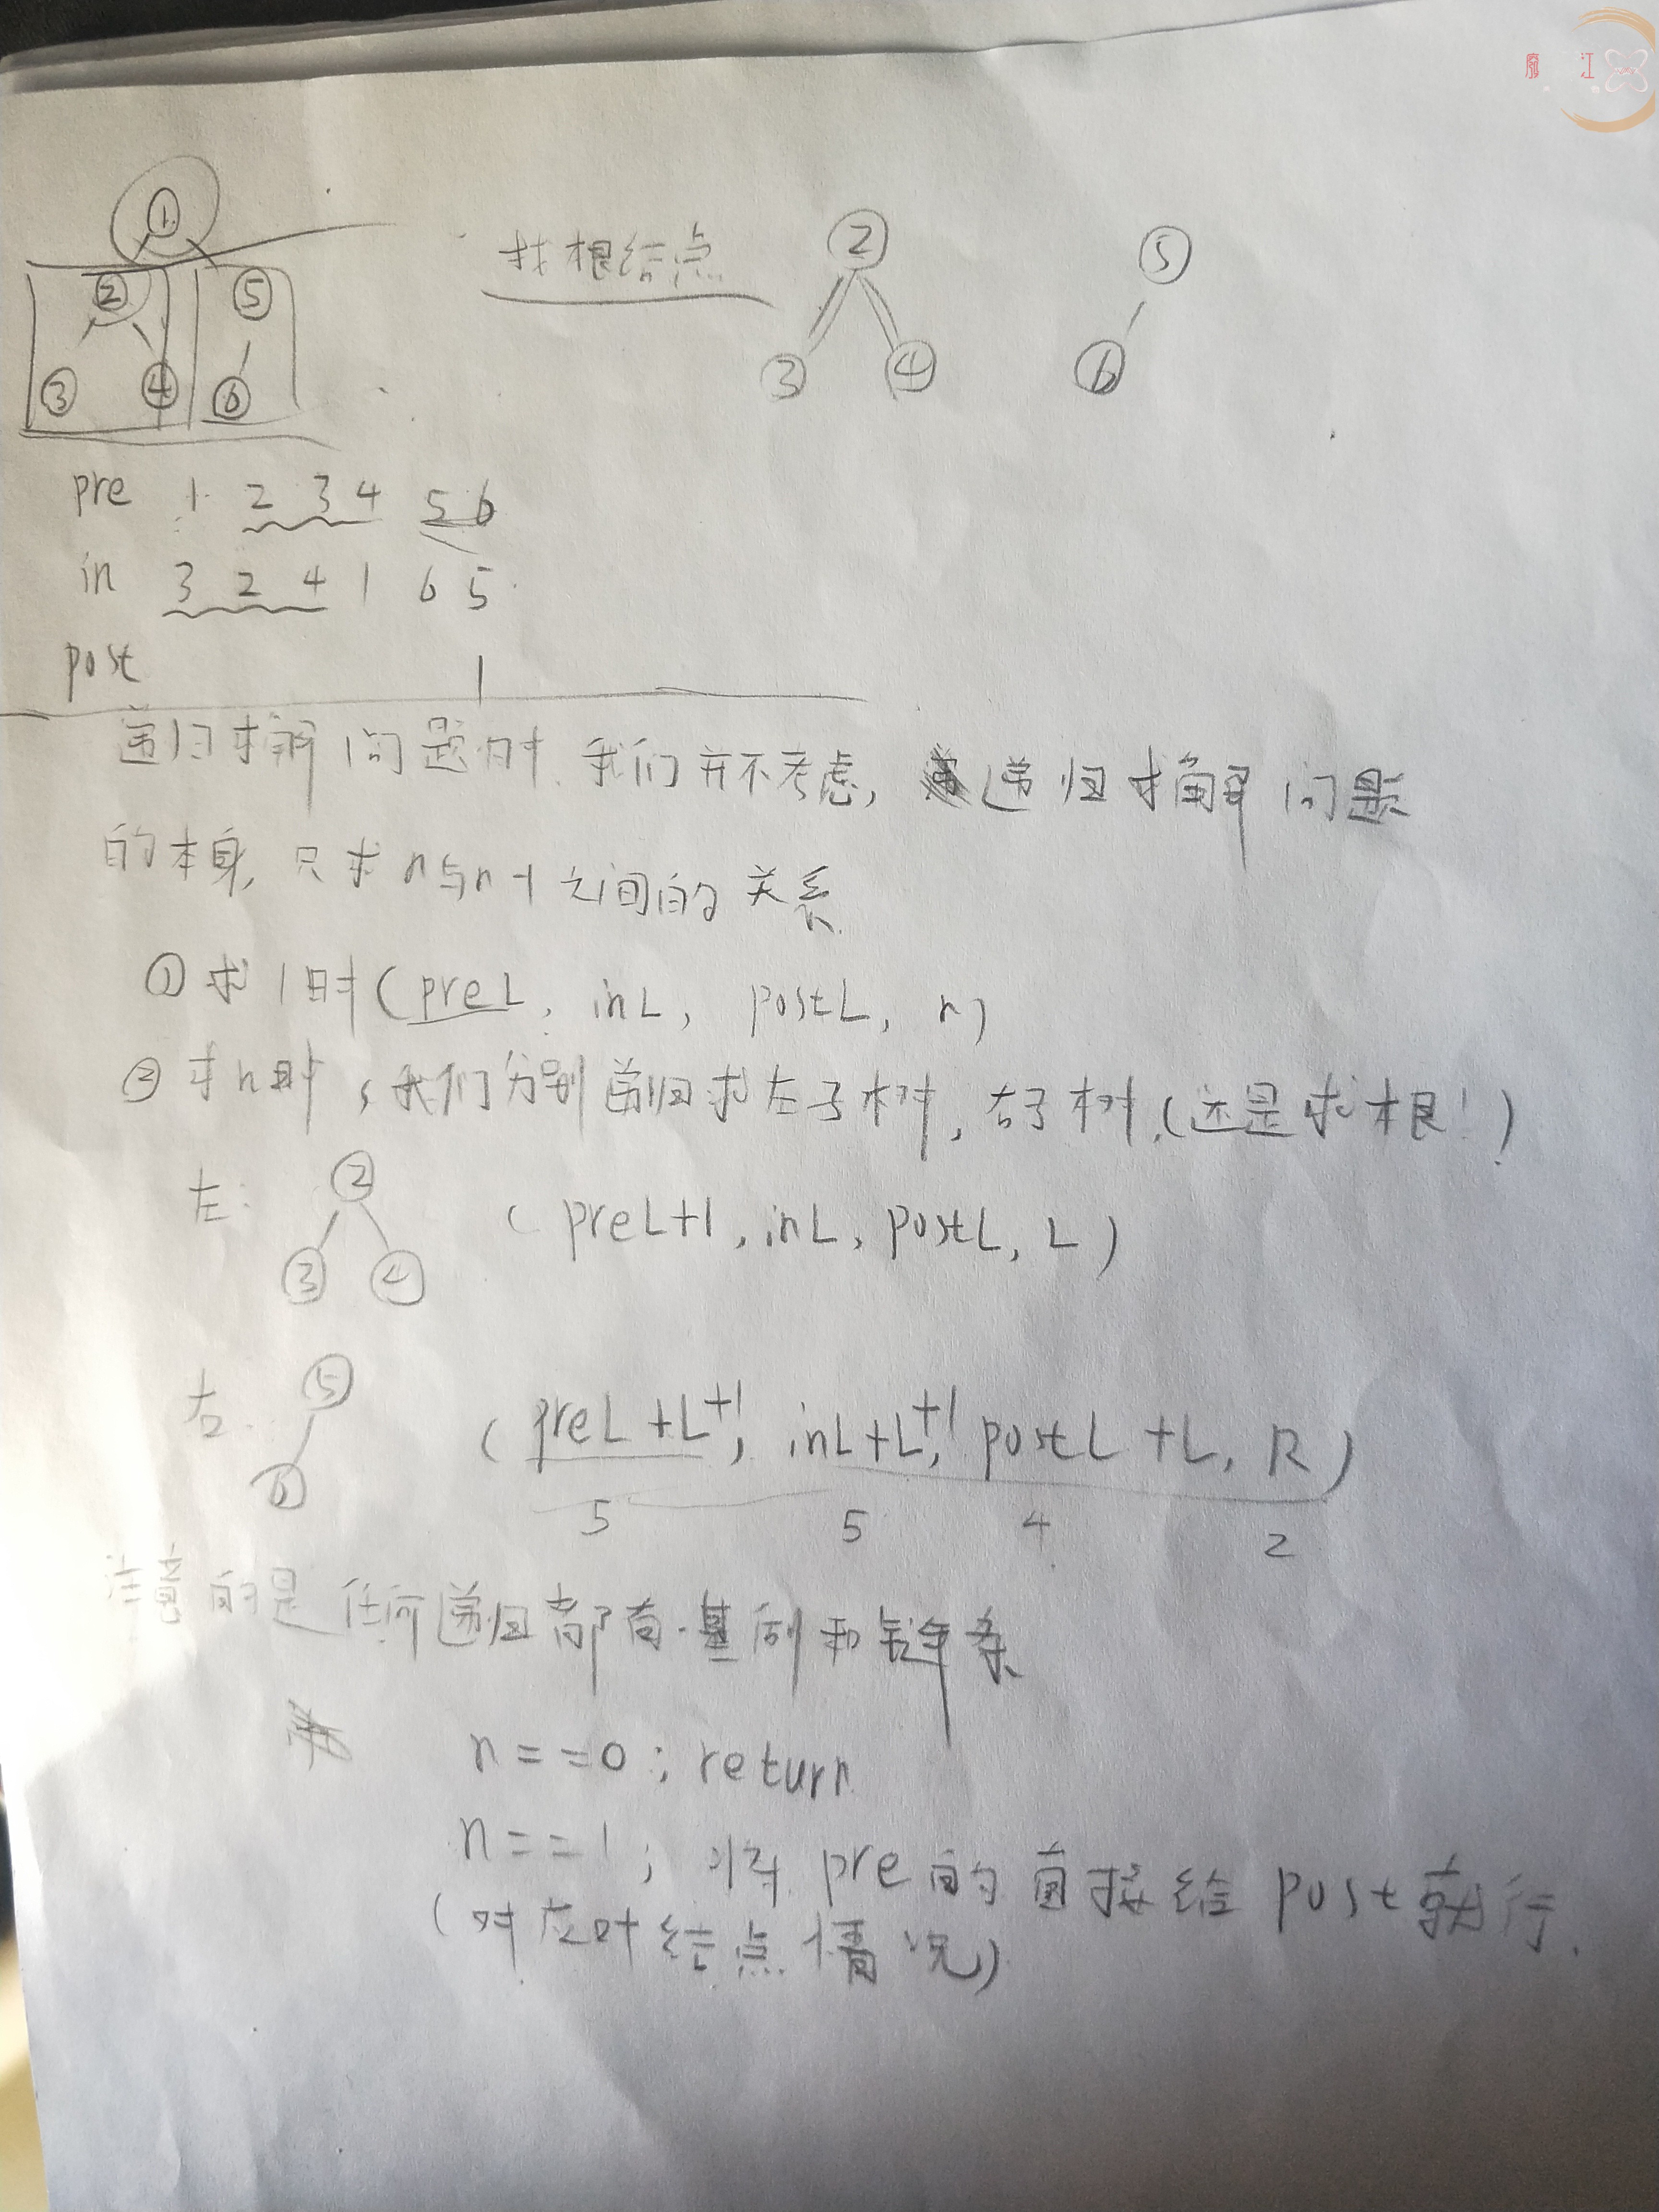 廖 江
1
2 5
3 4 6
找根结点
2
3 4
5
6
pre 1 2 3 4 5 6
in 3 2 4 1 6 5
post 1
递归求解问题时,我们并不考虑,递归求解问题
的本身,只求n与n-1之间的关系
① 求1时(preL, inL, postL, n)
② 求n时,我们分别递归求左子树,右子树.(还是求根!)
左: 2
3 4
( preL+1, inL, postL, L )
右. 5
6
( preL+L+1, inL+L+1, postL+L, R )
5 5 4 2
注意的是任何递归都有基例和链条
n==0; return
n==1; 将pre的直接给post就行.
(对应叶结点情况)